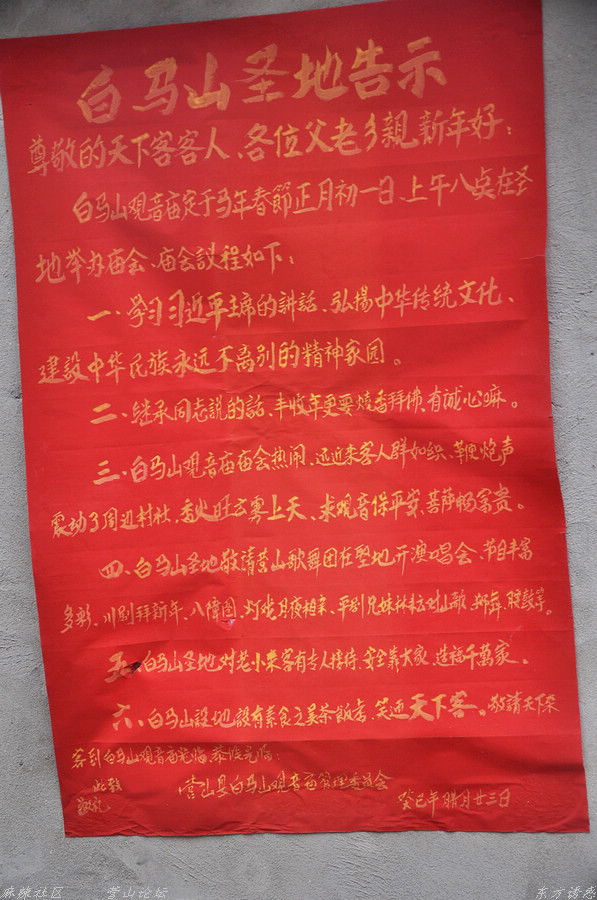 白马山圣地告示
尊敬的天下客客人、各位父老乡親新年好:
白马山观音庙定于马年春節正月初一日、上午八点在圣
地举办庙会、庙会議程如下:
一、学习习近平主席的讲話、弘揚中华传统文化、
建設中华民族永远不离别的精神家园。
二、继承同志説的話、丰收年更要燒香拜佛、有誠心嘛。
三、白马山观音庙庙会热闹、远近来客人群如织、鞭炮声
震动了周边村社、香火旺云雾上天、求观音保平安、菩萨赐富贵。
四、白马山圣地敬请营山歌舞团在圣地开演唱会、节目丰富
多彩、川剧拜新年、八障图、灯戏月夜相来、平剧兄妹林 对山歌、 舞、腰鼓等。
五、白马山圣地对老小来客有专人接待、安全靠大家、造福千萬家。
六、白马山設地設有素食之美茶飯香、笑迎天下客。敬請天下来
客到白马山观音庙光临、恭候光临:
此致
敬礼
营山县白马山观音庙管理委员会
癸已年腊月廿三日
麻辣社区 营山论坛 东方诱惑